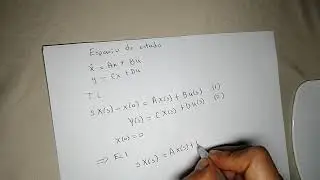 Espacio de estado
ẋ = Ax + Bu
y = Cx + Du
T.L
sX(s) - x(0) = AX(s) + Bu(s) (1)
Y(s) = CX(s) + Du(s) (2)
X(0) = 0
⇒ Ec 1
sX(s) = AX(s) +